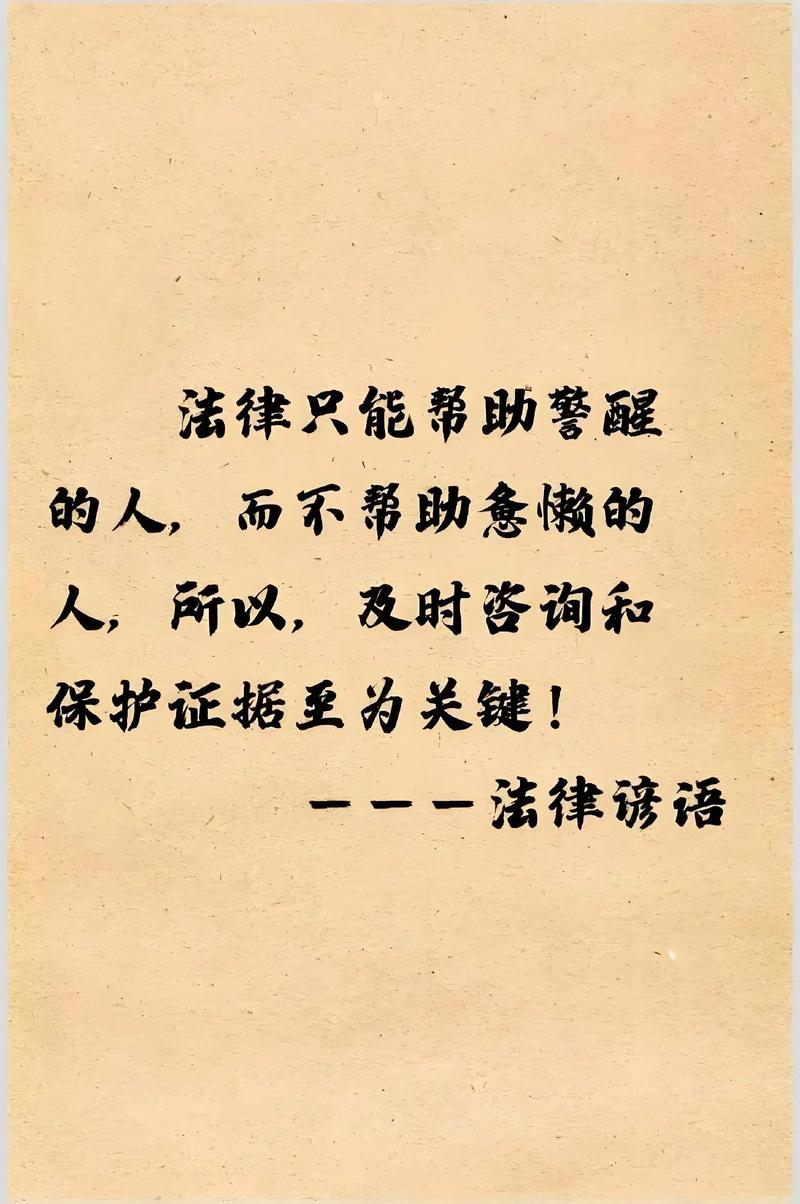 法律只能帮助警醒
的人，而不帮助惫懒的
人，所以，及时咨询和
保护证据至为关键！
———法律谚语